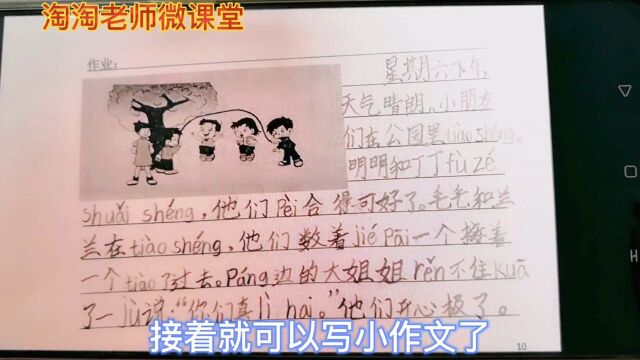 淘淘老师微课堂
作业：
星期六下午，
天气晴朗。小朋友
们在公园里tiào shéng。
明明和丁丁fù zé
shuǎi shéng，他们Pèi合得可好了。毛毛和兰
兰在tiào shéng，他们数着jié Pāi一个接着
一个tiào了过去。Páng边的大姐姐rěn不住kuā
了一jù说：“你们真lì hai。”他们开心极了。
接着就可以写小作文了
10